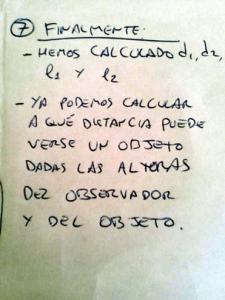 7 FINALMENTE.
- HEMOS CALCULADO d1, d2,
l1 Y l2
- YA PODEMOS CALCULAR
A QUÉ DISTANCIA PUEDE
VERSE UN OBJETO
DADAS LAS ALTURAS
DEL OBSERVADOR
Y DEL OBJETO.